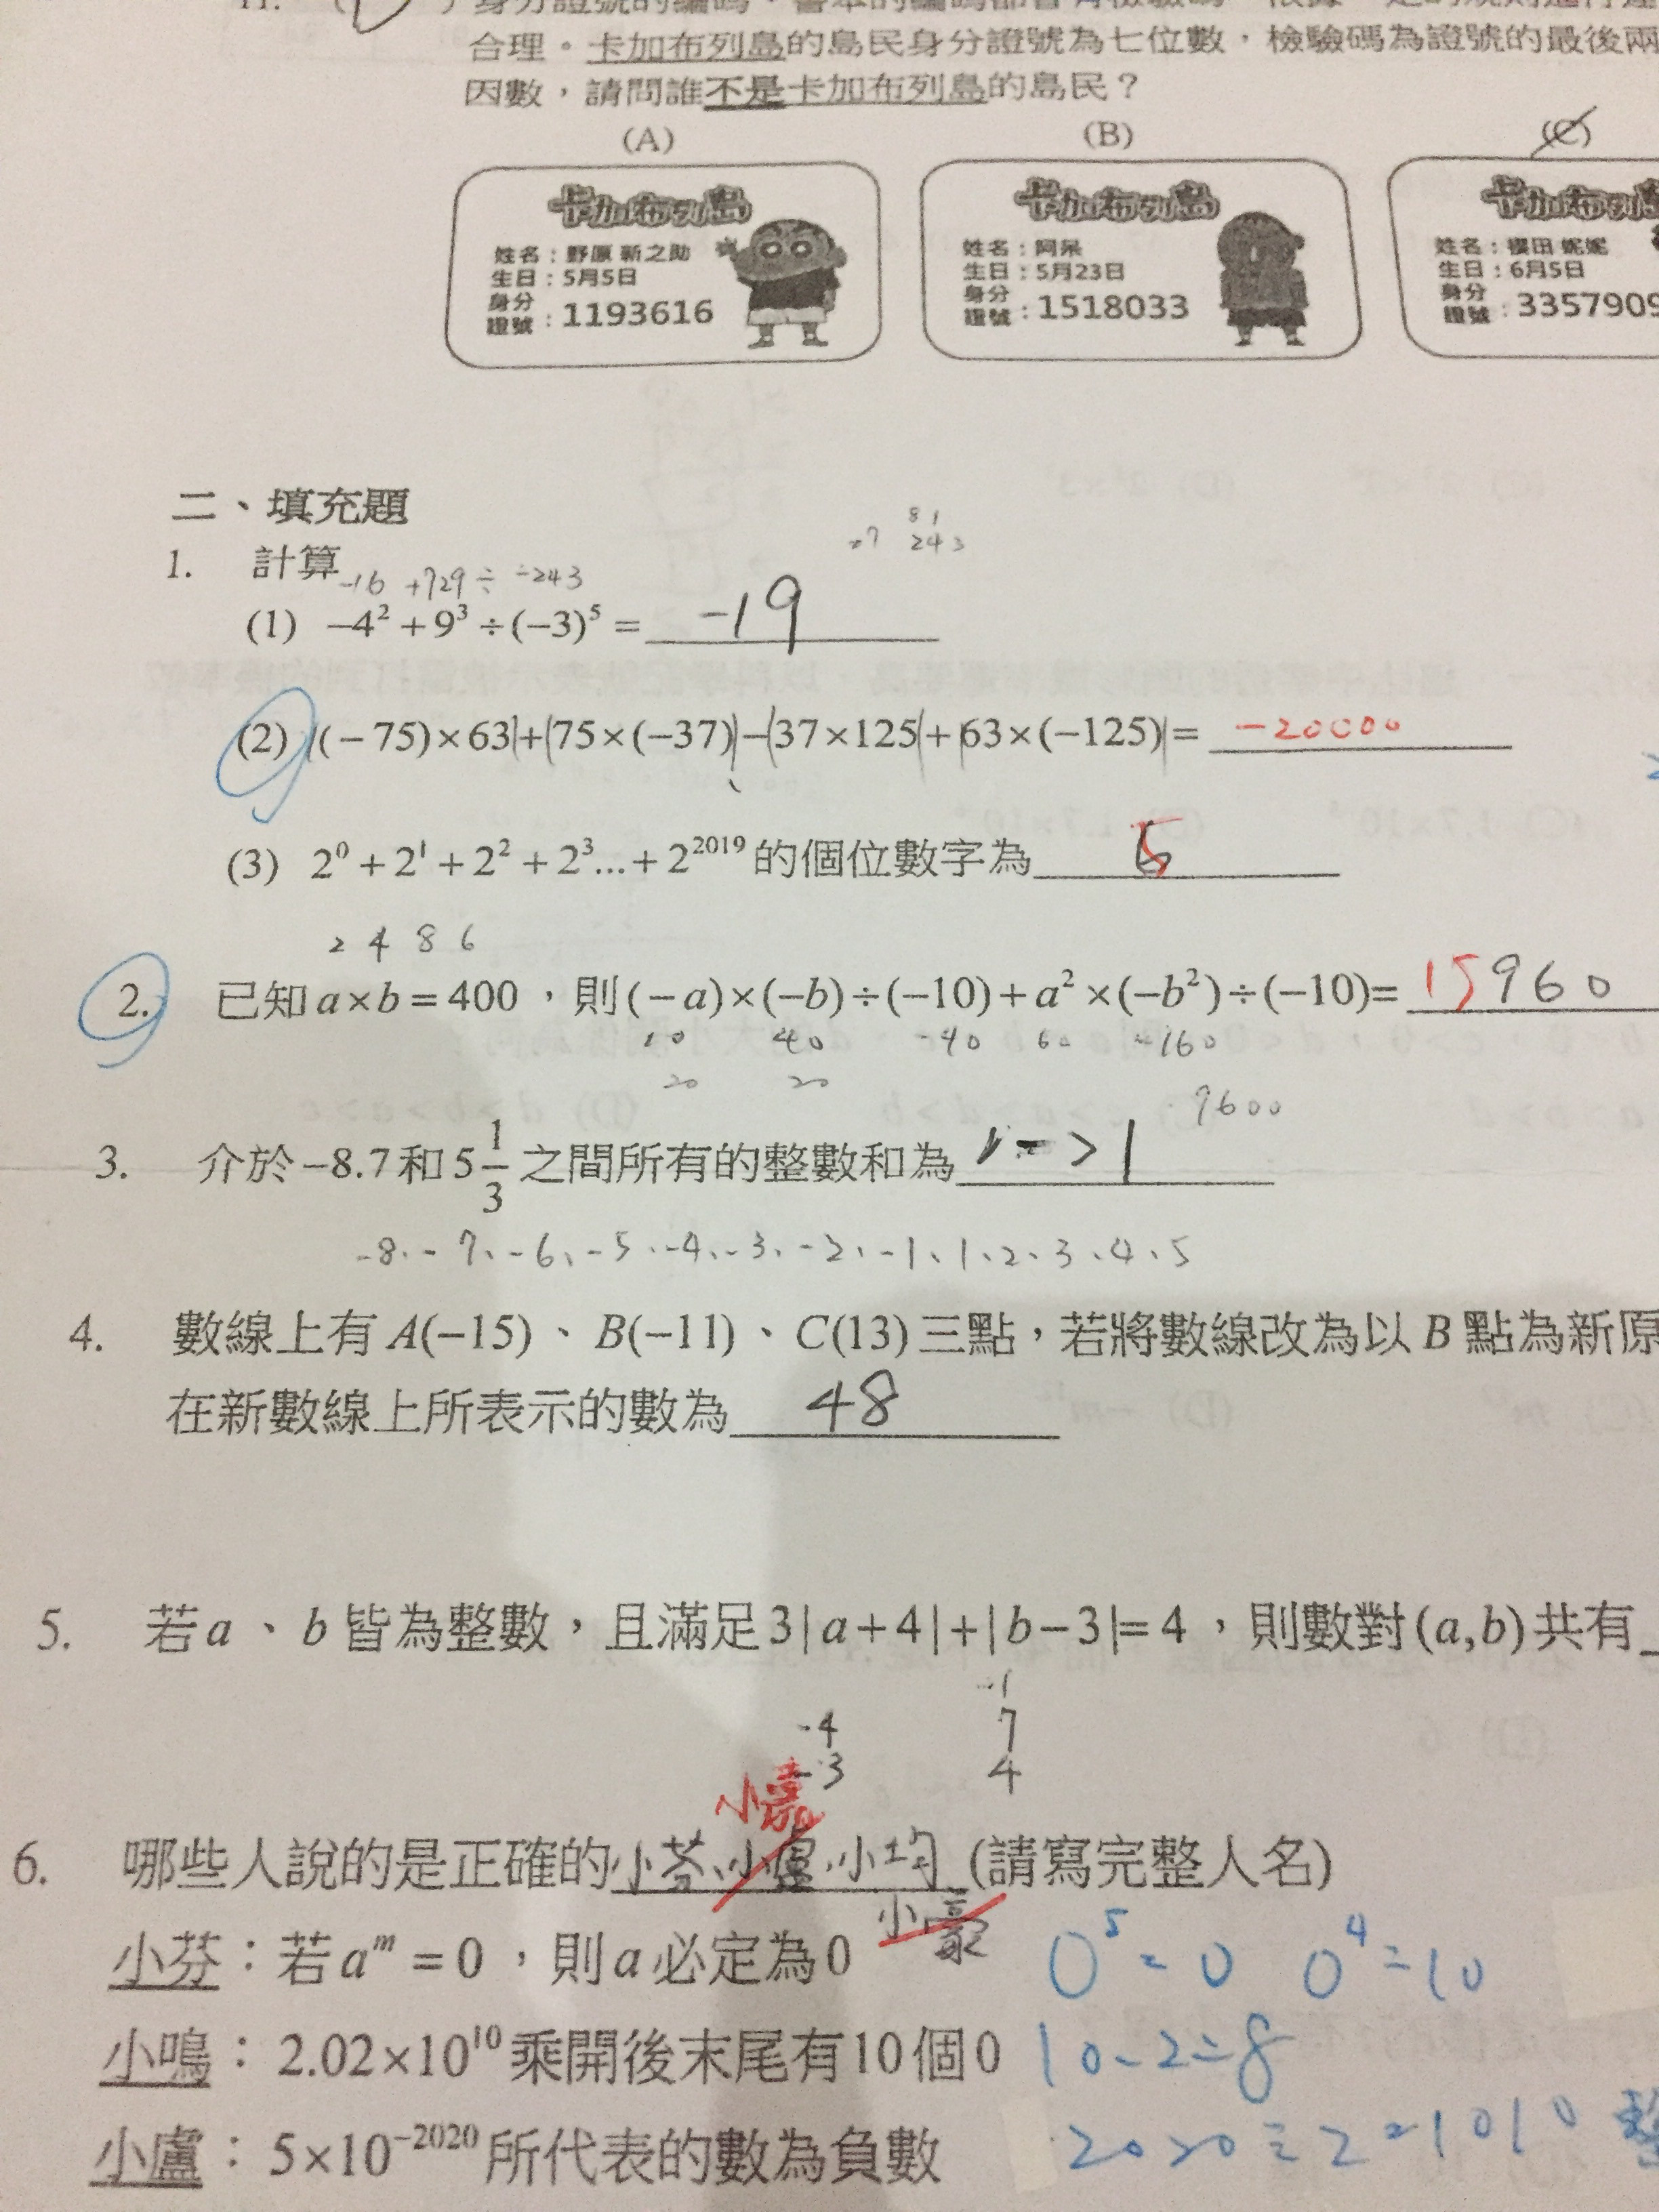 合理。卡加布列島的島民身分證號為七位數，檢驗碼為證號的最後兩
因數，請問誰不是卡加布列島的島民？
(A) (B) (C)
卡加布列島
姓名：野原 新之助
生日：5月5日
身分證號：1193616
卡加布列島
姓名：阿呆
生日：5月23日
身分證號：1518033
卡加布列島
姓名：櫻田 妮妮
生日：6月5日
身分證號：3357909
二、填充題
81
27 243
1. 計算
-16 +729÷ -243
(1) −4²+9³÷(−3)⁵= -19
(2) (−75)×63+75×(−37)−37×125+63×(−125)= -20000
(3) 2⁰+2¹+2²+2³...+2²⁰¹⁹的個位數字為 5
2 4 8 6
2. 已知a×b=400，則(−a)×(−b)÷(−10)+a²×(−b²)÷(−10)= 15960
10 40 -40 60 -160
20 20
9600
3. 介於−8.7和5 1/3 之間所有的整數和為
-8、-7、-6、-5、-4、-3、-2、-1、1、2、3、4、5
4. 數線上有A(−15)、B(−11)、C(13)三點，若將數線改為以B點為新原
在新數線上所表示的數為 48
5. 若a、b皆為整數，且滿足3|a+4|+|b−3|=4，則數對(a,b)共有
-1
-4 7
-3 4
小嘉
6. 哪些人說的是正確的小芬、小盧、小均(請寫完整人名)
小豪
小芬：若aᵐ=0，則a必定為0 0⁵=0 0⁴=10
小鳴：2.02×10¹⁰乘開後末尾有10個0 10-2=8
小盧：5×10⁻²⁰²⁰所代表的數為負數 2020÷2=1010